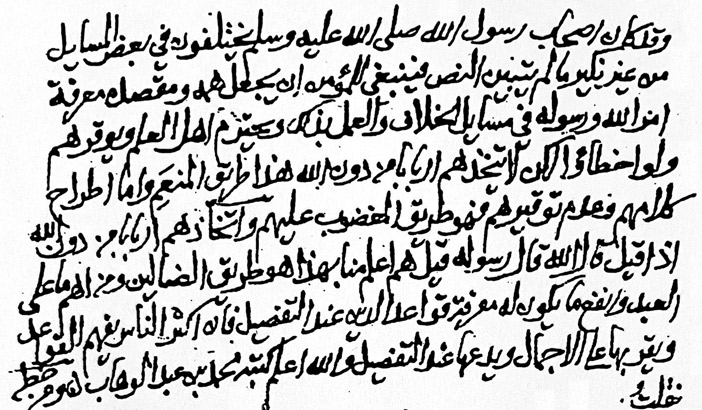 وقد كان اصحاب رسول الله صلى الله عليه وسلم يختلفون في بعض المسايل
من غير نكير ما لم يتبين النص فينبغي للمؤمن ان يجعل همه ومقصده معرفة
امر الله ورسوله في مسايل الخلاف والعمل بذلك ويحترم اهل العلم ويوقرهم
ولو اخطاؤا لكن لا يتخذهم اربابا من دون الله هذا طريق المنعم واما اطراح
كلامهم وعدم توقيرهم فهو طريق المغضوب عليهم واتخاذهم اربابا من دون الله
اذا قيل قال الله قال رسوله قيل هم اعلم منا بهذا هو طريق الضالين ومن اهم ما على
العبد وانفع ما يكون له معرفة قواعد الدين عند التفصيل فان اكثر الناس يفهم القواعد
ويقر بها على الاجمال ويدعها عند التفصيل والله اعلم كتبه محمد بن عبد الوهاب ومن خطه
نقلت